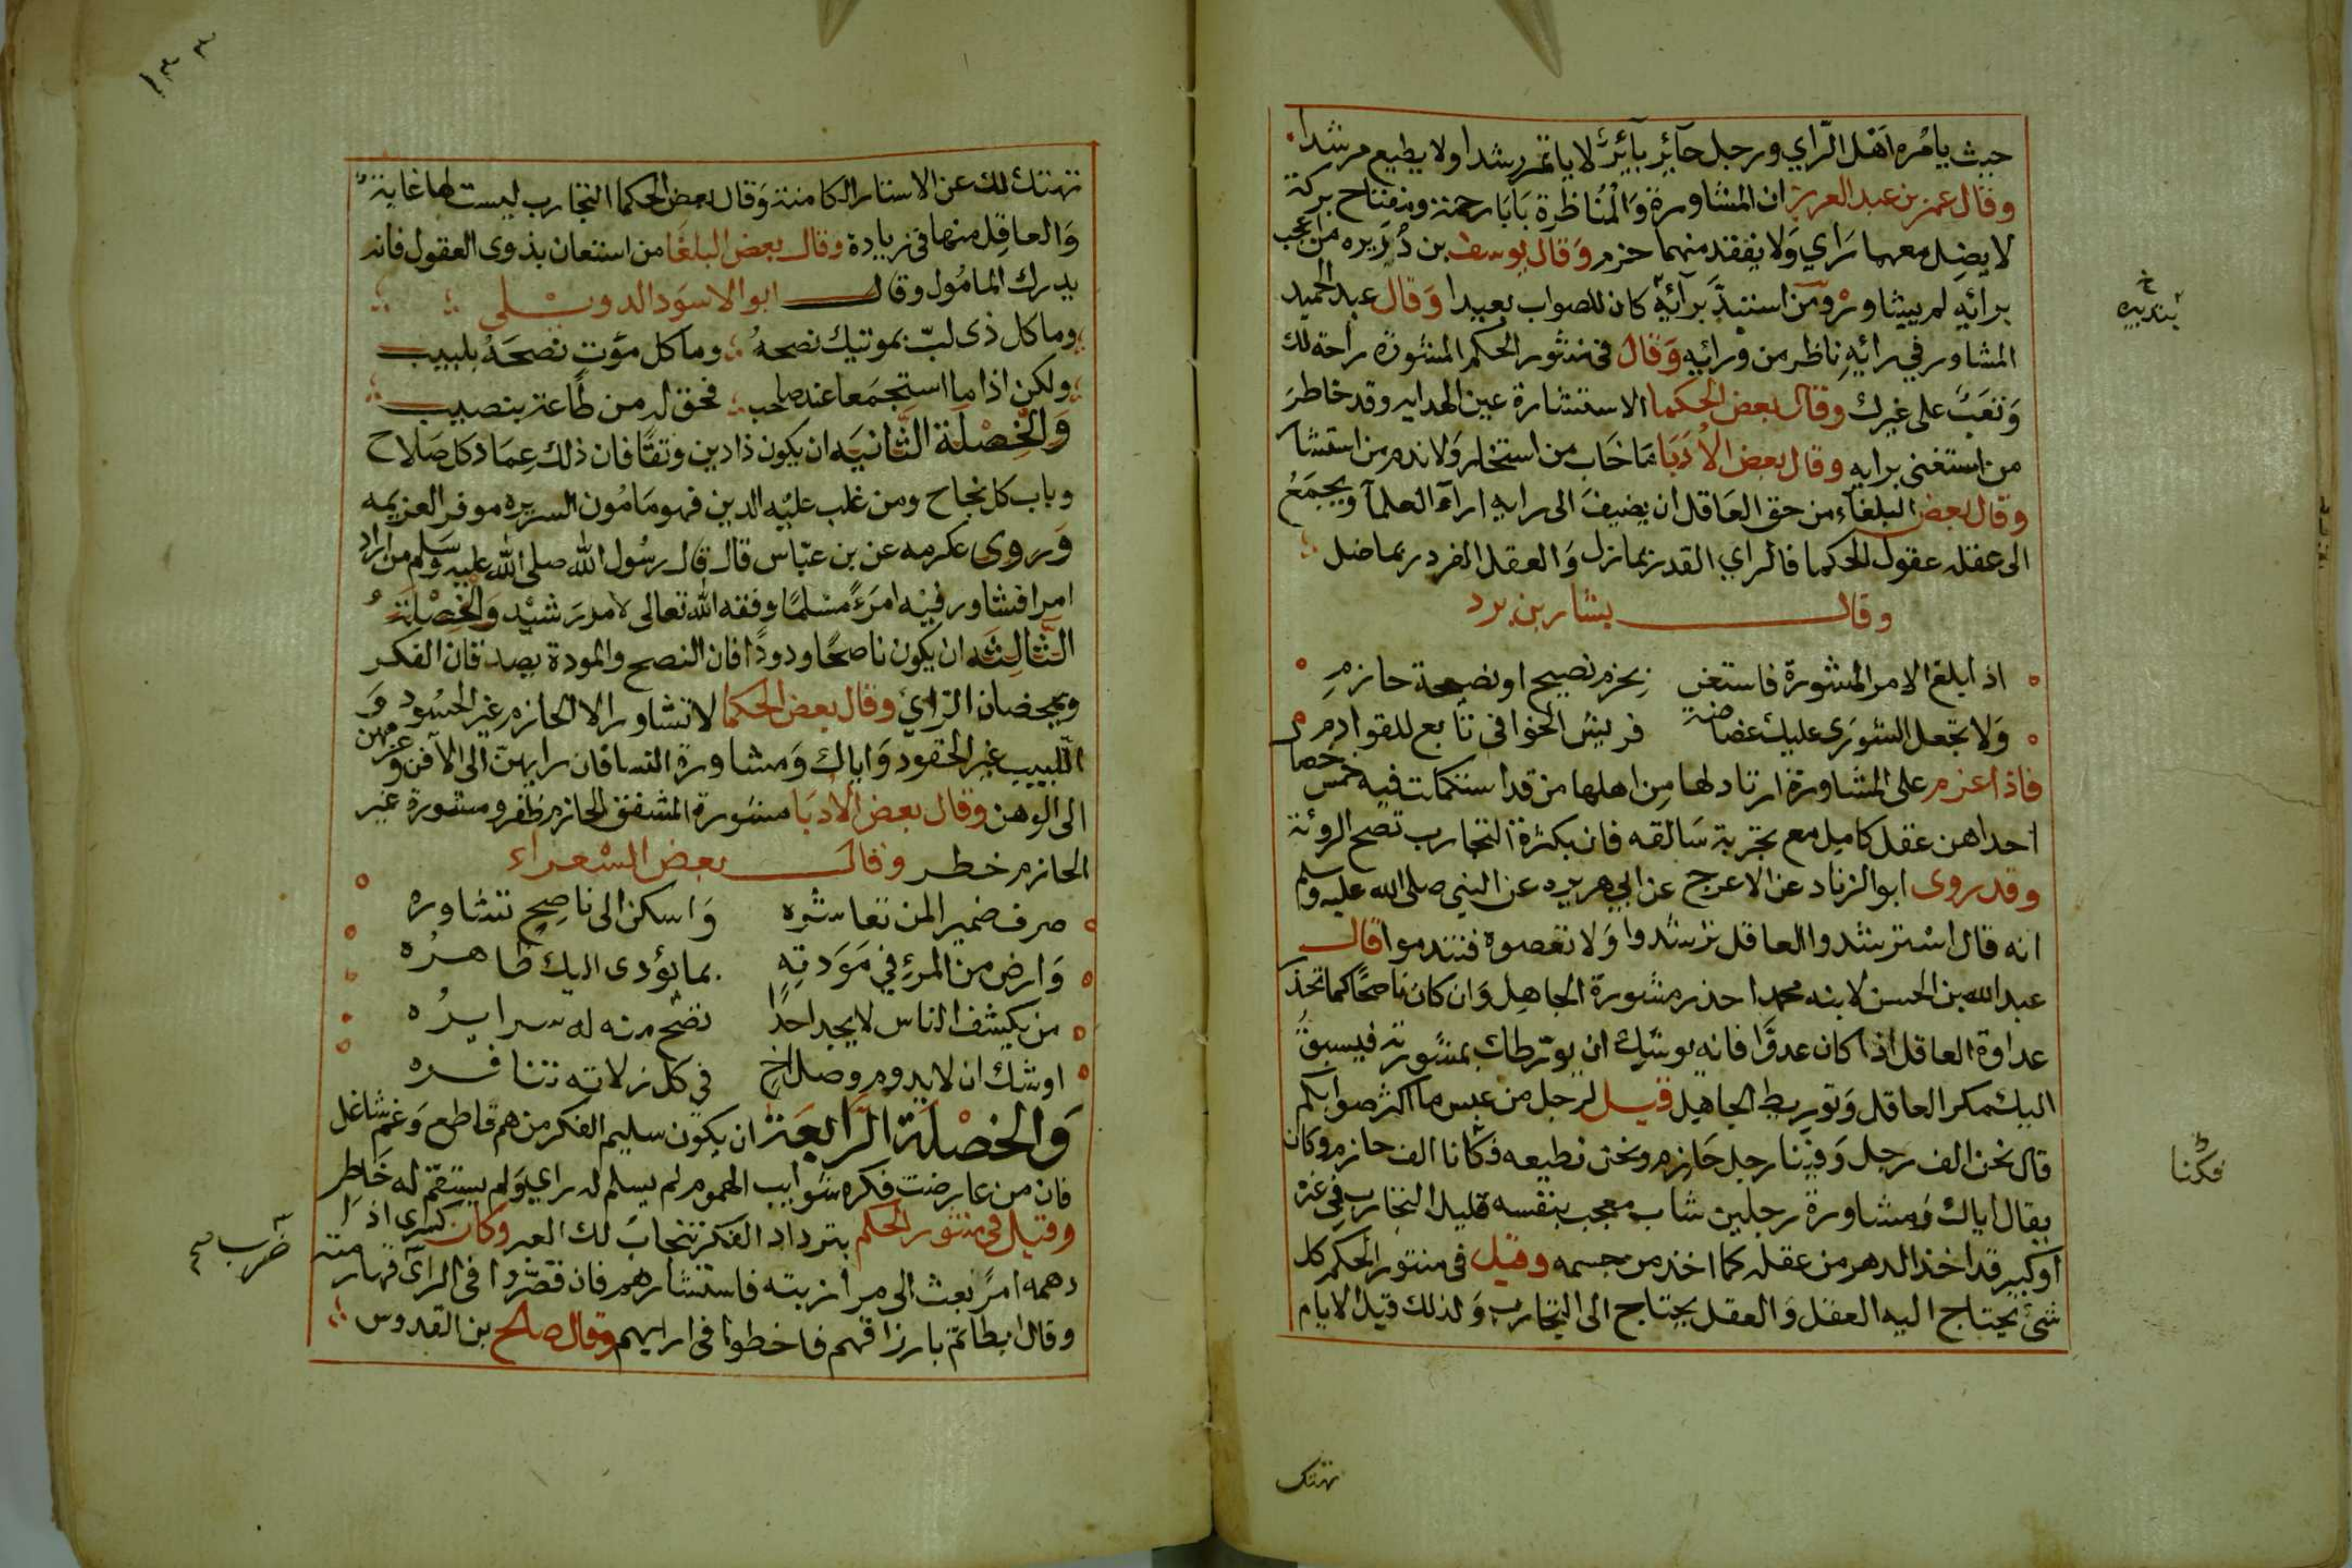 حيث يامره اهل الرّاي ورجل حآئر بآئر لا ياتمر رشدا ولا يطيع مرشدا
وقال عمر بن عبد العزيز ان المشاورة وَالمُناظرة بَابَا رحمة ومفتاح بركة
لا يضل معهما رَاي وَلا يفقد منهما حزم وَقال يوسف بن دُرَيره من عجب
برائه لم يشاور ومن استبدَّ برآئه كان للصواب بعيدا وَقال عبد الحميد
المشاور في رائهِ ناظر من ورائهِ وَقال في منثور الحكم المشورة راحة لك
وَتعَبٌ على غيرك وقال بعض الحكما الاستشارة عين الهدايه وقد خاطرَ
من استغنى برايه وقال بعض الاُدَبَا مَا خَاب من استخار وَلا ندم من استشار
وقال بعض البلغآء من حق العَاقل ان يضيفَ الى رايه ارآء العلمآ ويجمَعُ
الى عقله عقول الحكما فالراي القد ربما زل وَالعقل الفرد ربما ضل
وقال بشار بن برد
اذا بلغ الامر المشورة فاستعن بحزم نصيح او نصيحة حازمِ
وَلا تجعل الشورَى عليك غضاضةً فريش الخوافى تابع للقوادم
فاذا اعزم على المشاورة ارتاد لها مِن اهلها من قد استكملت فيه خمس خصال
احداهن عقل كامِل مع تجربة سَالفه فان بكثرة التجارب تصح الروئة
وقد روى ابو الزناد عن الاعرج عن ابي هريره عن النبي صلى الله عليه وسلم
انه قال اسْترشدوا العاقل ترشدوا وَلا تعصوه فتندموا قال
عبد الله بن الحسن لابنه محمد احذر مشورة الجاهِل وَان كان ناصحًا كما تحذر
عداوة العاقل اذا كان عدوَّا فانه يوشك ان يورّطك بمشورته فيسبقُ
اليك مكر العاقل وَتوريط الجاهِل قيل لرجل من عبس ما اكثر صوابكم
قال نحن الف رجل وَفينا رجل حَازم ونحن نطيعه فكانا الف حازم وكان
يقال اياك وَمشاورة رجلين شاب معجب بنفسه قليل التجارب في غيره
اَو كبير قد اخذ الدهر من عقله كما اخذ من جسمه وقيل في منثور الحكم كل
شئ يحتاج اليه العقل وَالعقل يحتاج الى التجارب وَلذلك قيل الايام
فكأنا
تهتك
تهتك لك عن الاستار الكامنة وَقال بعض الحكما التجارب ليست لها غاية
وَالعاقِل منها في زيادة وقال بعض البلغَا من استعان بذوى العقول فانه
يدرك المامُول وقال ابو الاسوَد الدوئلي
وما كل ذى لبّ بموتيك نصحهُ وما كل مؤتٍ نصحَهُ بلبيب
ولكن اذا ما استجمَعا عند صاحب فحق له من طَاعة بنصيب
وَالخِصْلَة الثّانيَه ان يكون ذا دين وتقًا فان ذلك عِمَاد كل صَلاح
وباب كل نجاح ومن غلب عليْه الدين فهو مَامُون السريره موفر العزيمه
وَروى عكرمه عن بن عبّاس قال قال رسُول الله صلى الله عليه وَسَلم من اراد
امرا فشاور فيْه امرءً مسْلمًا وفقه الله تعالى لامر رَشيْد وَالخِصْلَةُ
الثّالِثَه ان يكون ناصحًا ودودًا فان النصح والمودة يصدقان الفكر
ويمحضان الرّاي وقال بعض الحكما لا تشاور الا الحازم غير الحسُود وَ
اللّبيب غير الحقود وَاياك وَمشاورة النسا فان رايهنّ الى الآفن وَعزمهن
الى الوهن وقال بعض الادَبَا مشورة المشفق الحازم ظفر ومشورة غير
الحازم خطر وقال بعض الشعراء
صرف ضمير المن تعاشره وَاسكن الى ناصِحٍ تشاوره
وَارض من المرءِ في مَوَدتهِ بما يؤدى اليك ظاهرُه
من يكشف الناس لا يجد احدًا نصح منه له سرايرُه
اوشك ان لا يدوم وصل اخٍ في كل زلاته تنافره
وَالخصْلَة الرّابعَة ان يكون سليم الفكر من هم قاطع وَغمٍّ شاغل
فان من عارضت فكره شوايب الهموم لم يسلم له راي وَلم يستقم له خَاطر
وقيل في منثور الحكم بترداد الفكر ينجابُ لك العبر وكان كسرى اذا
دهمه امرٌ بعث الى مرازبته فاستشارهم فان قصّروا في الرآى
وقال ابطاتم بارزاقهم فاخطوا في ارايهم وقال صالح بن القدوس
ضرب صح